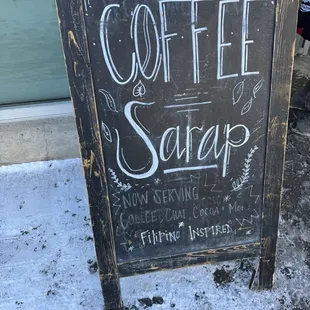 COFFEE
Sarap
NOW SERVING
COFFEE, CHAI, COCOA +
FILIPINO INSPIRED